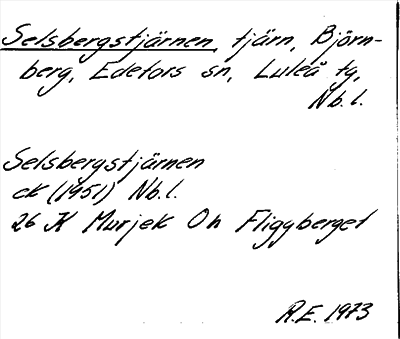 Selsbergstjärnen, tjärn, Björn-
berg, Edefors sn, Luleå tg,
Nb.l.
Selsbergstjärnen
ek (1951) Nb.l.
26 K Murjek Oh Fliggberget
R.E. 1973